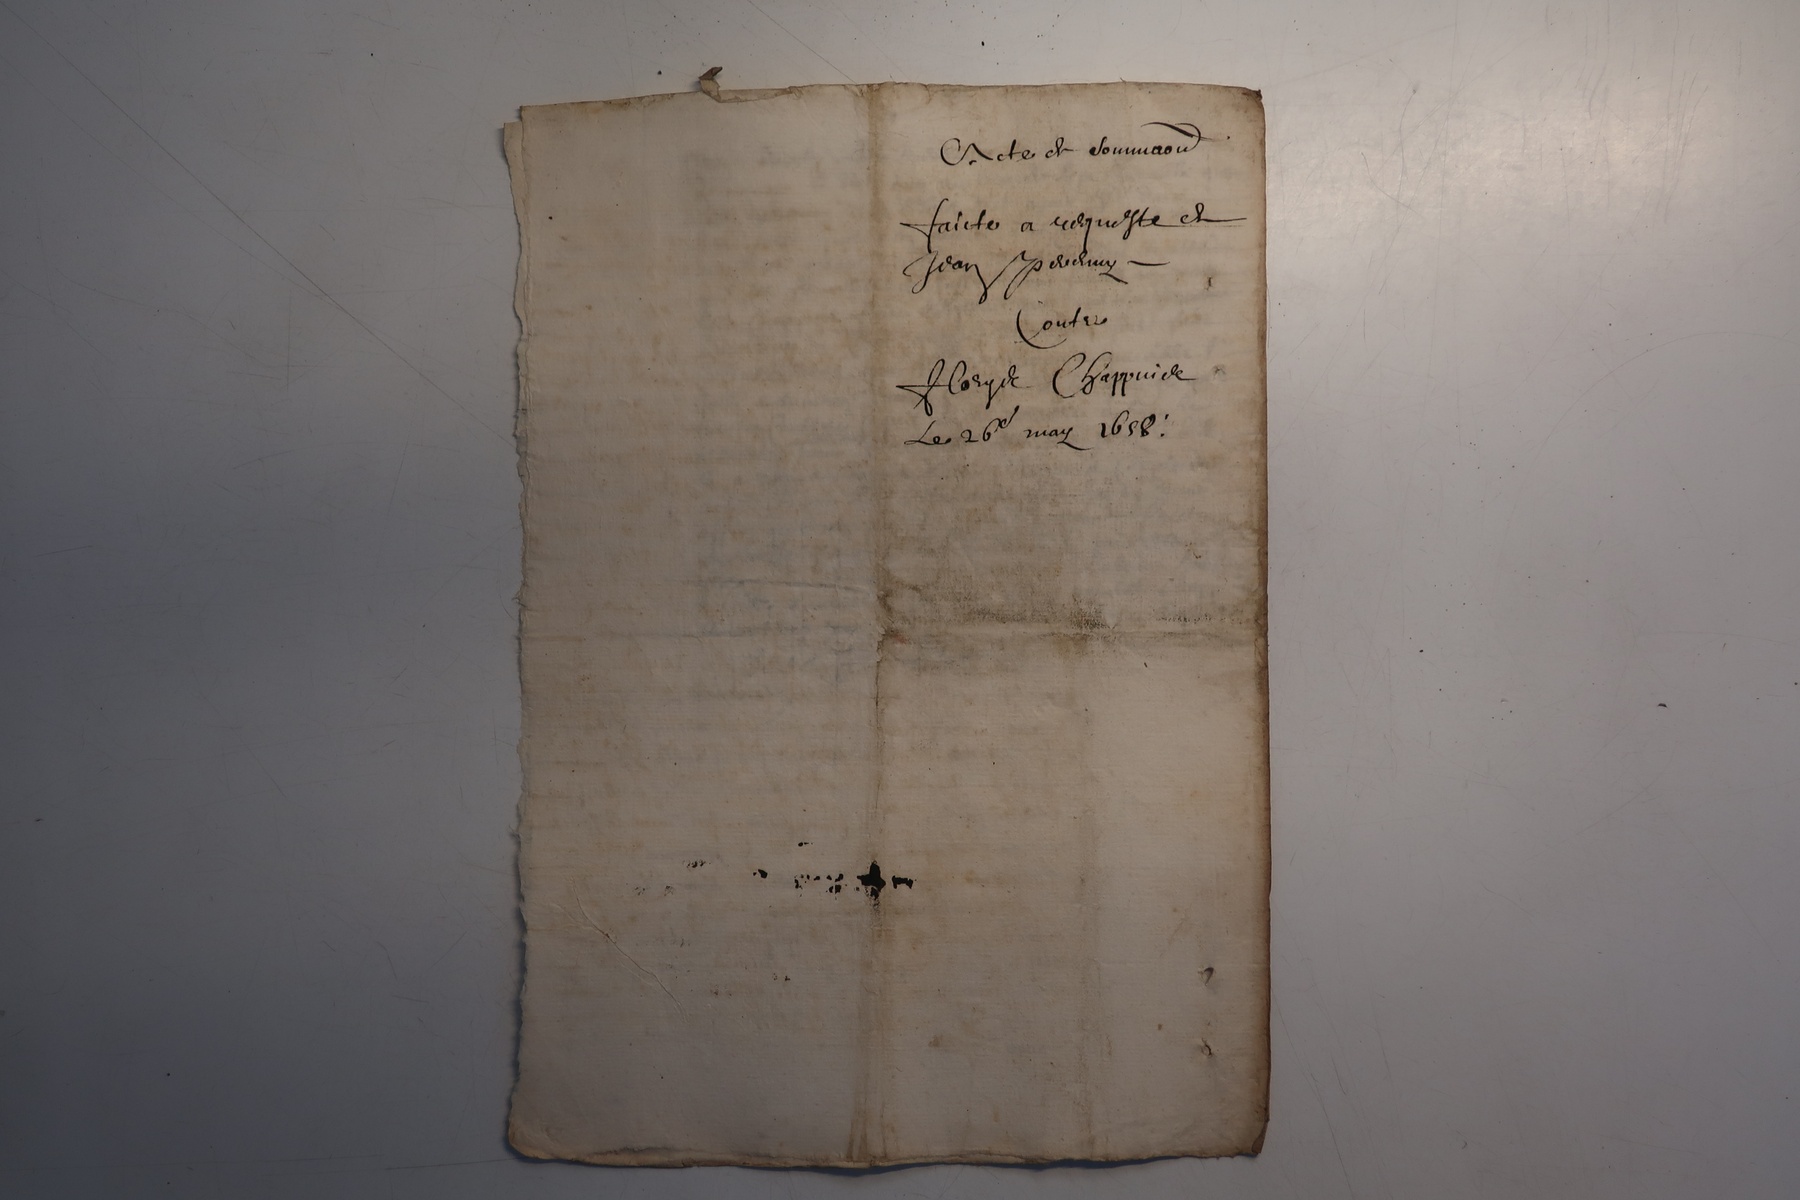 Acte de sommaon
faicte a requeste de
Jean
Contre
Chappuide
Le 26e may 1658: